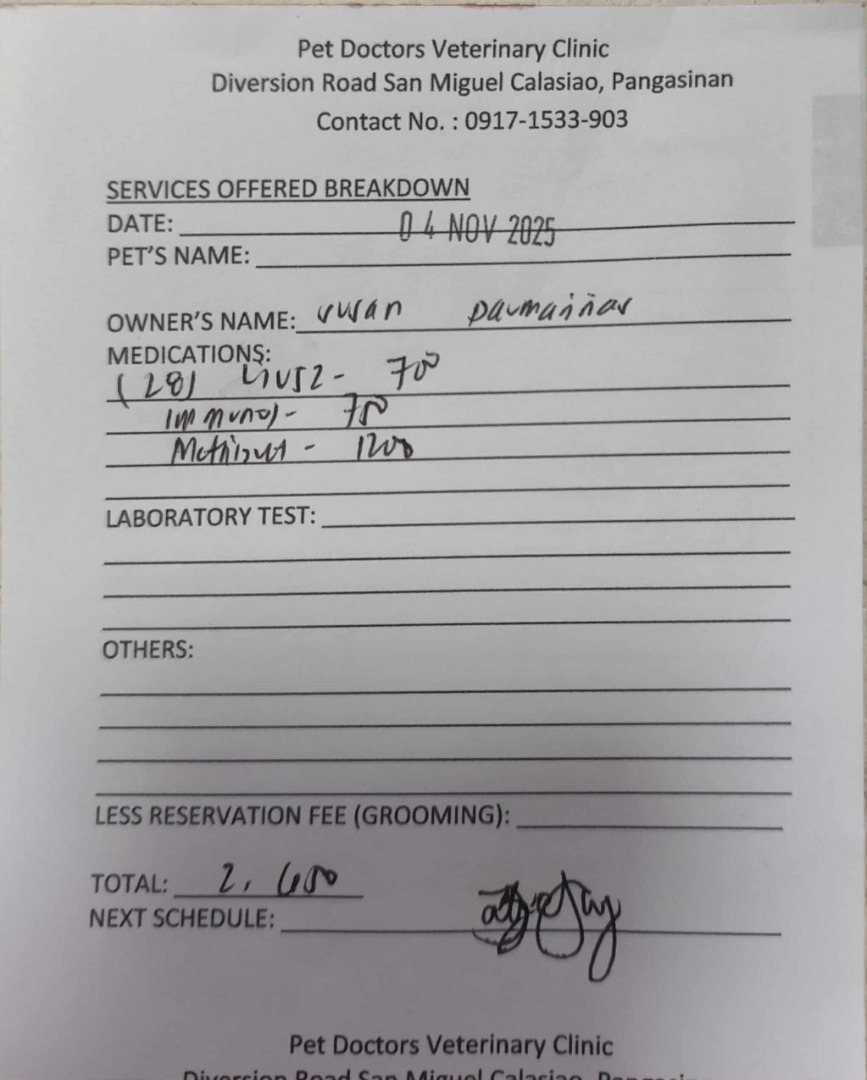 Pet Doctors Veterinary Clinic
Diversion Road San Miguel Calasiao, Pangasinan
Contact No. : 0917-1533-903
SERVICES OFFERED BREAKDOWN
DATE: 04 NOV 2025
PET'S NAME:
OWNER'S NAME: susan
MEDICATIONS:
(28) LIV52 - 700
Immunol - 750
- 1200
LABORATORY TEST:
OTHERS:
LESS RESERVATION FEE (GROOMING):
TOTAL: 2,650
NEXT SCHEDULE:
Pet Doctors Veterinary Clinic
Diversion Road San Miguel Calasiao,